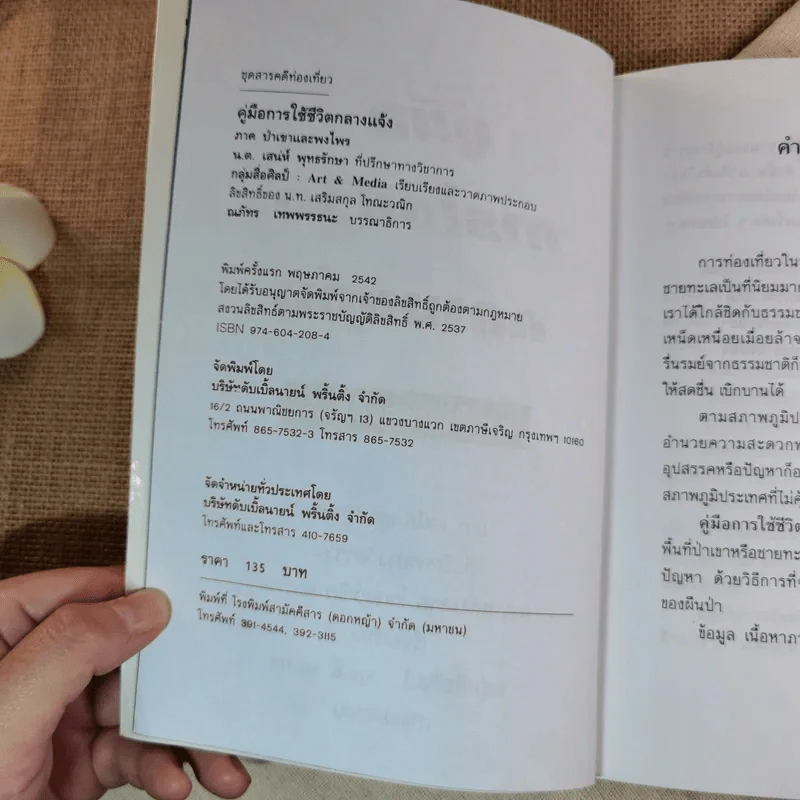 ชุดสารคดีท่องเที่ยว
คู่มือการใช้ชีวิตกลางแจ้ง
ภาค ป่าเขาและพงไพร
น.ต. เสน่ห์ พุทธรักษา ที่ปรึกษาทางวิชาการ
กลุ่มสื่อศิลป์ : Art & Media เรียบเรียงและวาดภาพประกอบ
ลิขสิทธิ์ของ น.ท. เสริมสกุล โทณะวณิก
ณภัทร เทพพรรธนะ บรรณาธิการ
พิมพ์ครั้งแรก พฤษภาคม 2542
โดยได้รับอนุญาตจัดพิมพ์จากเจ้าของลิขสิทธิ์ถูกต้องตามกฎหมาย
สงวนลิขสิทธิ์ตามพระราชบัญญัติลิขสิทธิ์ พ.ศ. 2537
ISBN 974-604-208-4
จัดพิมพ์โดย
บริษัทดับเบิ้ลนายน์ พริ้นติ้ง จำกัด
16/2 ถนนพาณิชยการ (จรัญฯ 13) แขวงบางแวก เขตภาษีเจริญ กรุงเทพฯ 10160
โทรศัพท์ 865-7532-3 โทรสาร 865-7532
จัดจำหน่ายทั่วประเทศโดย
บริษัทดับเบิ้ลนายน์ พริ้นติ้ง จำกัด
โทรศัพท์และโทรสาร 410-7659
ราคา 135 บาท
พิมพ์ที่ โรงพิมพ์สามัคคีสาร (ดอกหญ้า) จำกัด (มหาชน)
โทรศัพท์ 391-4544, 392-3115
คำ
การท่องเที่ยวใน
ชายทะเลเป็นที่นิยมมา
เราได้ใกล้ชิดกับธรรมช
เหน็ดเหนื่อยเมื่อยล้าจ
รื่นรมย์จากธรรมชาติก็
ให้สดชื่น เบิกบานได้
ตามสภาพภูมิป
อำนวยความสะดวก
อุปสรรคหรือปัญหาก็อ
สภาพภูมิประเทศที่ไม่
คู่มือการใช้ชีวิ
พื้นที่ป่าเขาหรือชายท
ปัญหา ด้วยวิธีการที่
ของผืนป่า
ข้อมูล เนื้อหา